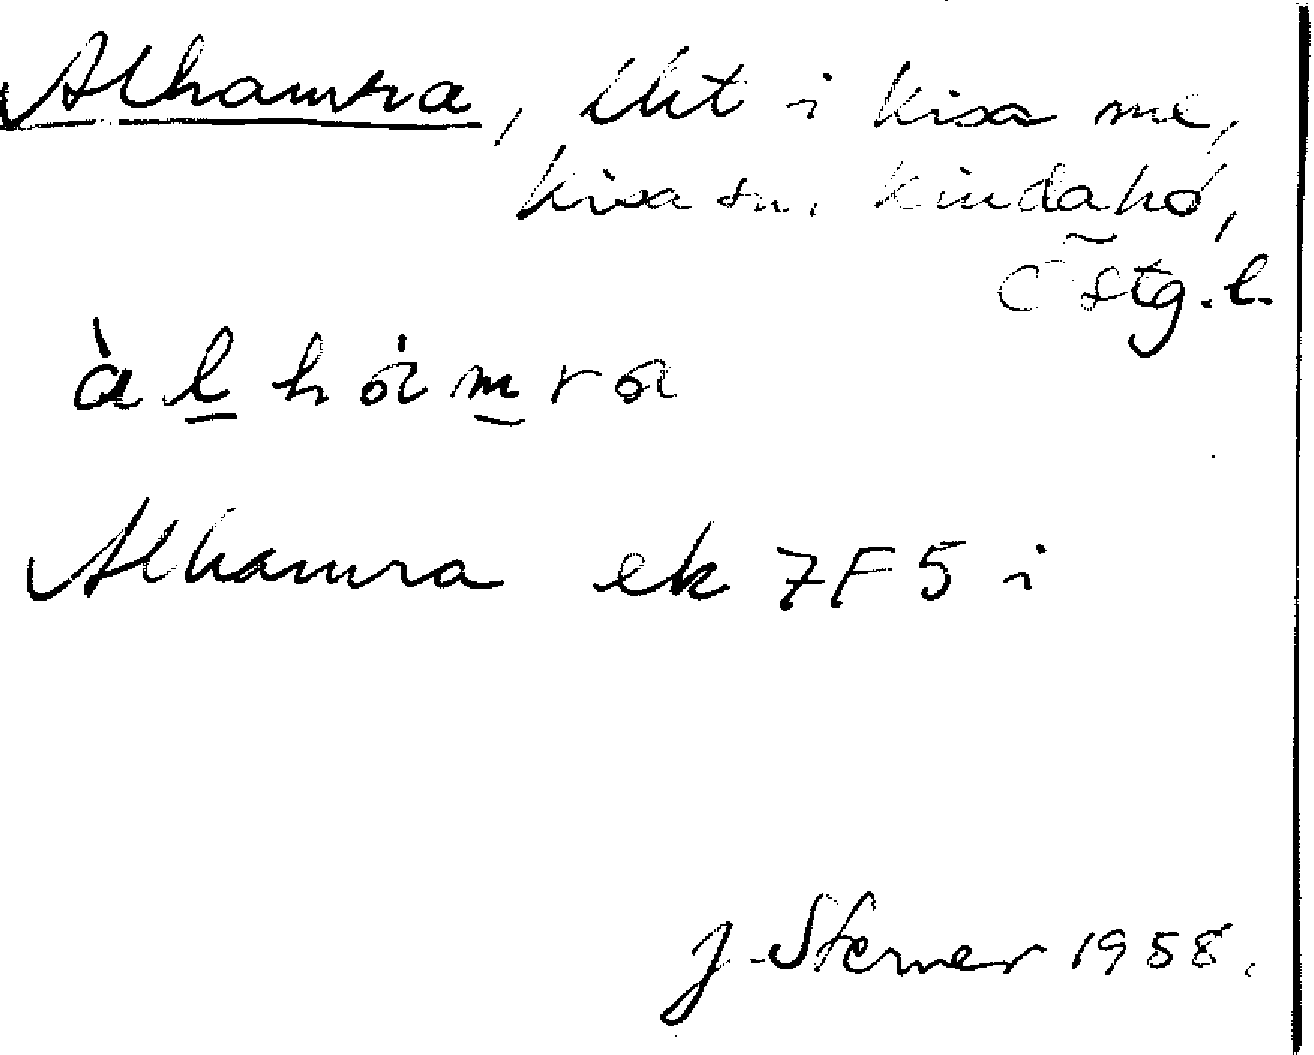 Alhamra, lht i Kisa me,
Kisa sn, Kinda hd,
Östg. l.
àl̲hám̲ra
Alhamra ek 7F5i
J. Sterner 1958.